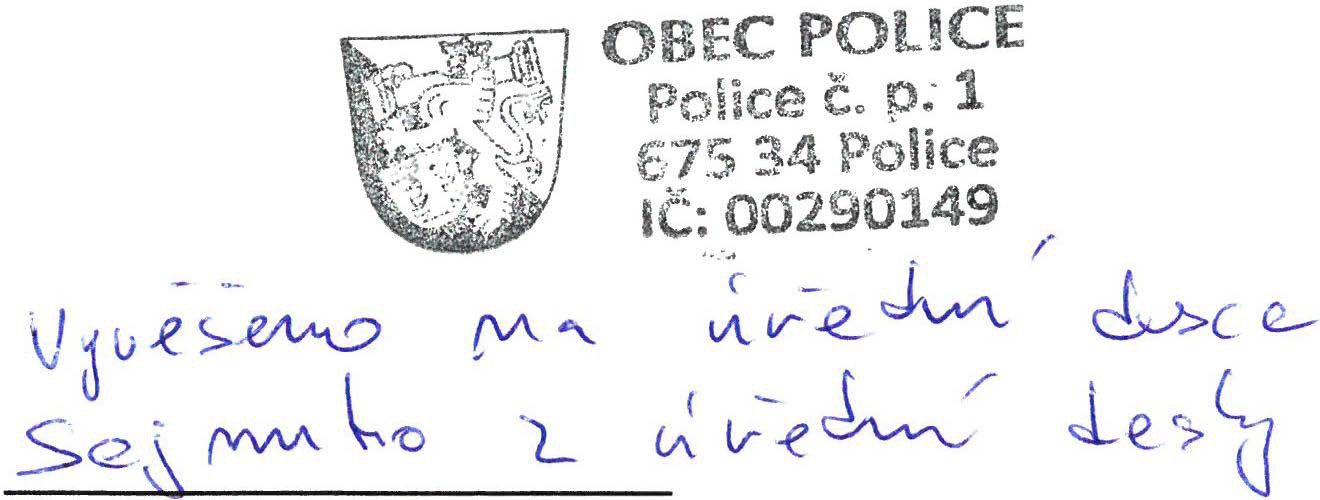 OBEC POLICE
Police č. p. 1
675 34 Police
IČ: 00290149
Vyvěšeno na úřední desce
Sejmuto z úřední desky